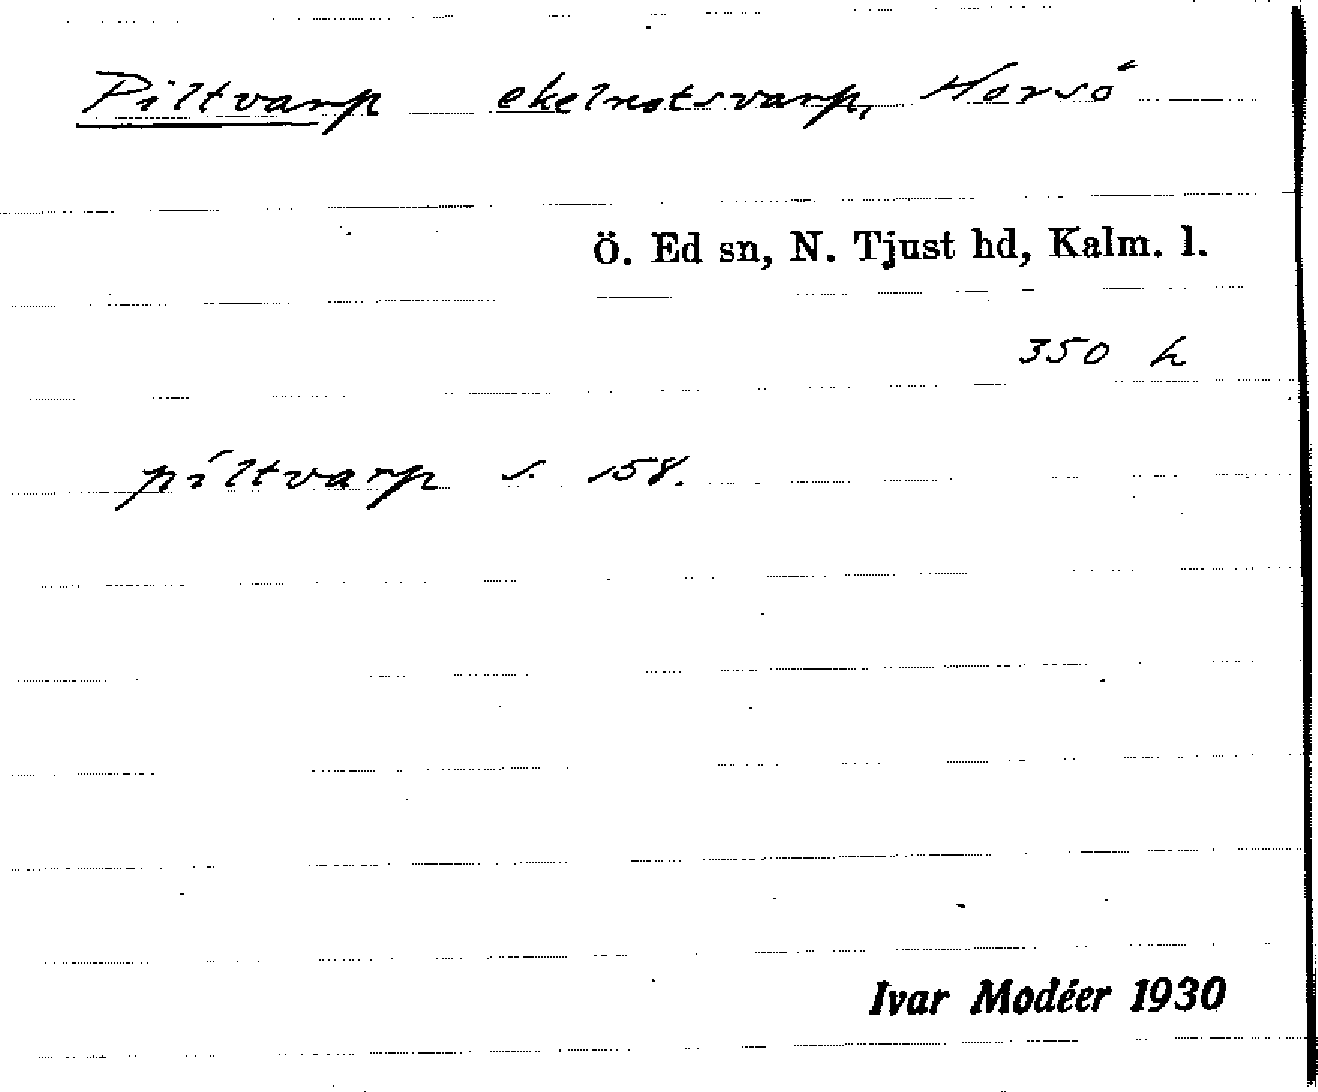 Piltvarp ekelnotsvarp, Horsö
Ö. Ed sn, N. Tjust hd, Kalm. l.
350 h
piltvarp s. 158.
Ivar Modéer 1930